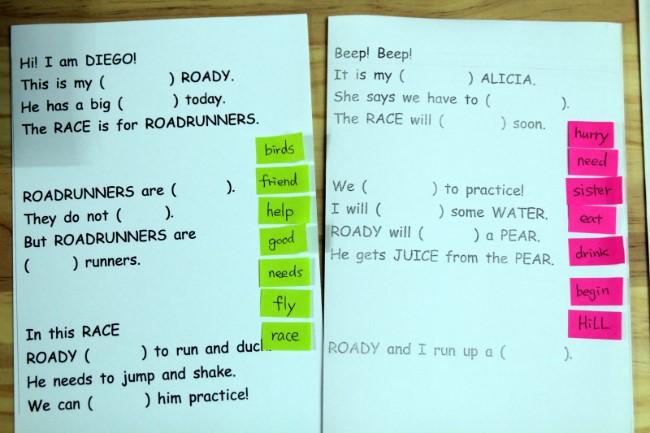 Hi! I am DIEGO!
This is my (          ) ROADY.
He has a big (        ) today.
The RACE is for ROADRUNNERS.
ROADRUNNERS are (        ).
They do not (      ).
But ROADRUNNERS are
(      ) runners.
In this RACE
ROADY (        ) to run and duck.
He needs to jump and shake.
We can (        ) him practice!
birds
friend
help
good
needs
fly
race
Beep! Beep!
It is my (          ) ALICIA.
She says we have to (          ).
The RACE will (        ) soon.
We (          ) to practice!
I will (        ) some WATER.
ROADY will (        ) a PEAR.
He gets JUICE from the PEAR.
ROADY and I run up a (        ).
hurry
need
sister
eat
drink
begin
HiLL